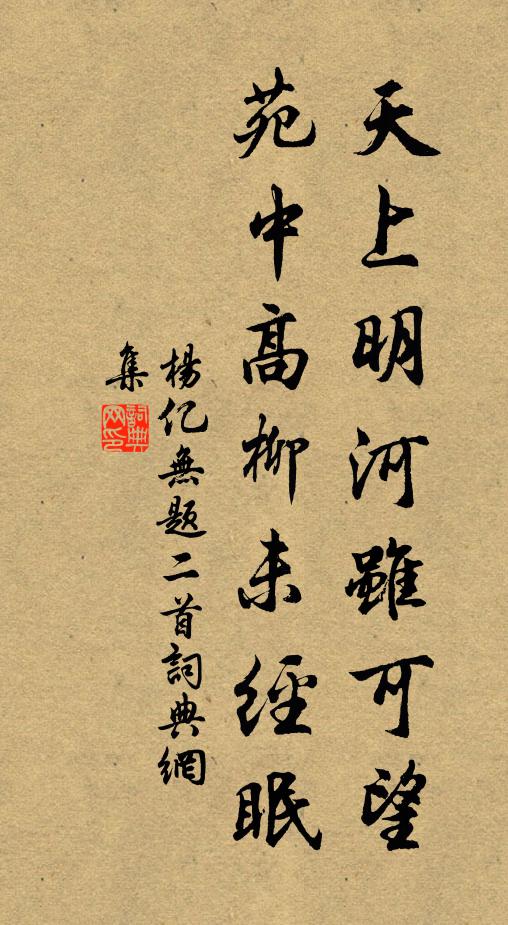 天上明河雖可望
苑中高柳未經眠
楊億無題二首詞典網
集
詞典網印